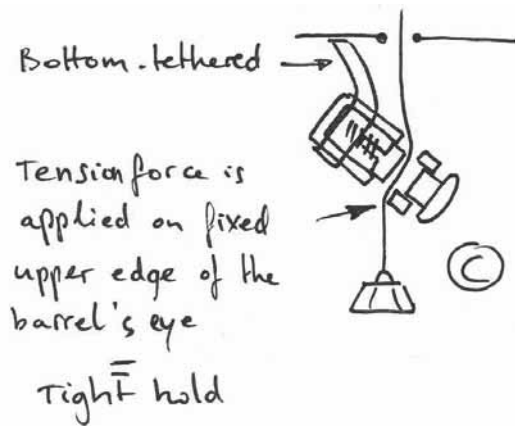 Bottom-tethered
Tension force is
applied on fixed
upper edge of the
barrel's eye
Tight hold
C